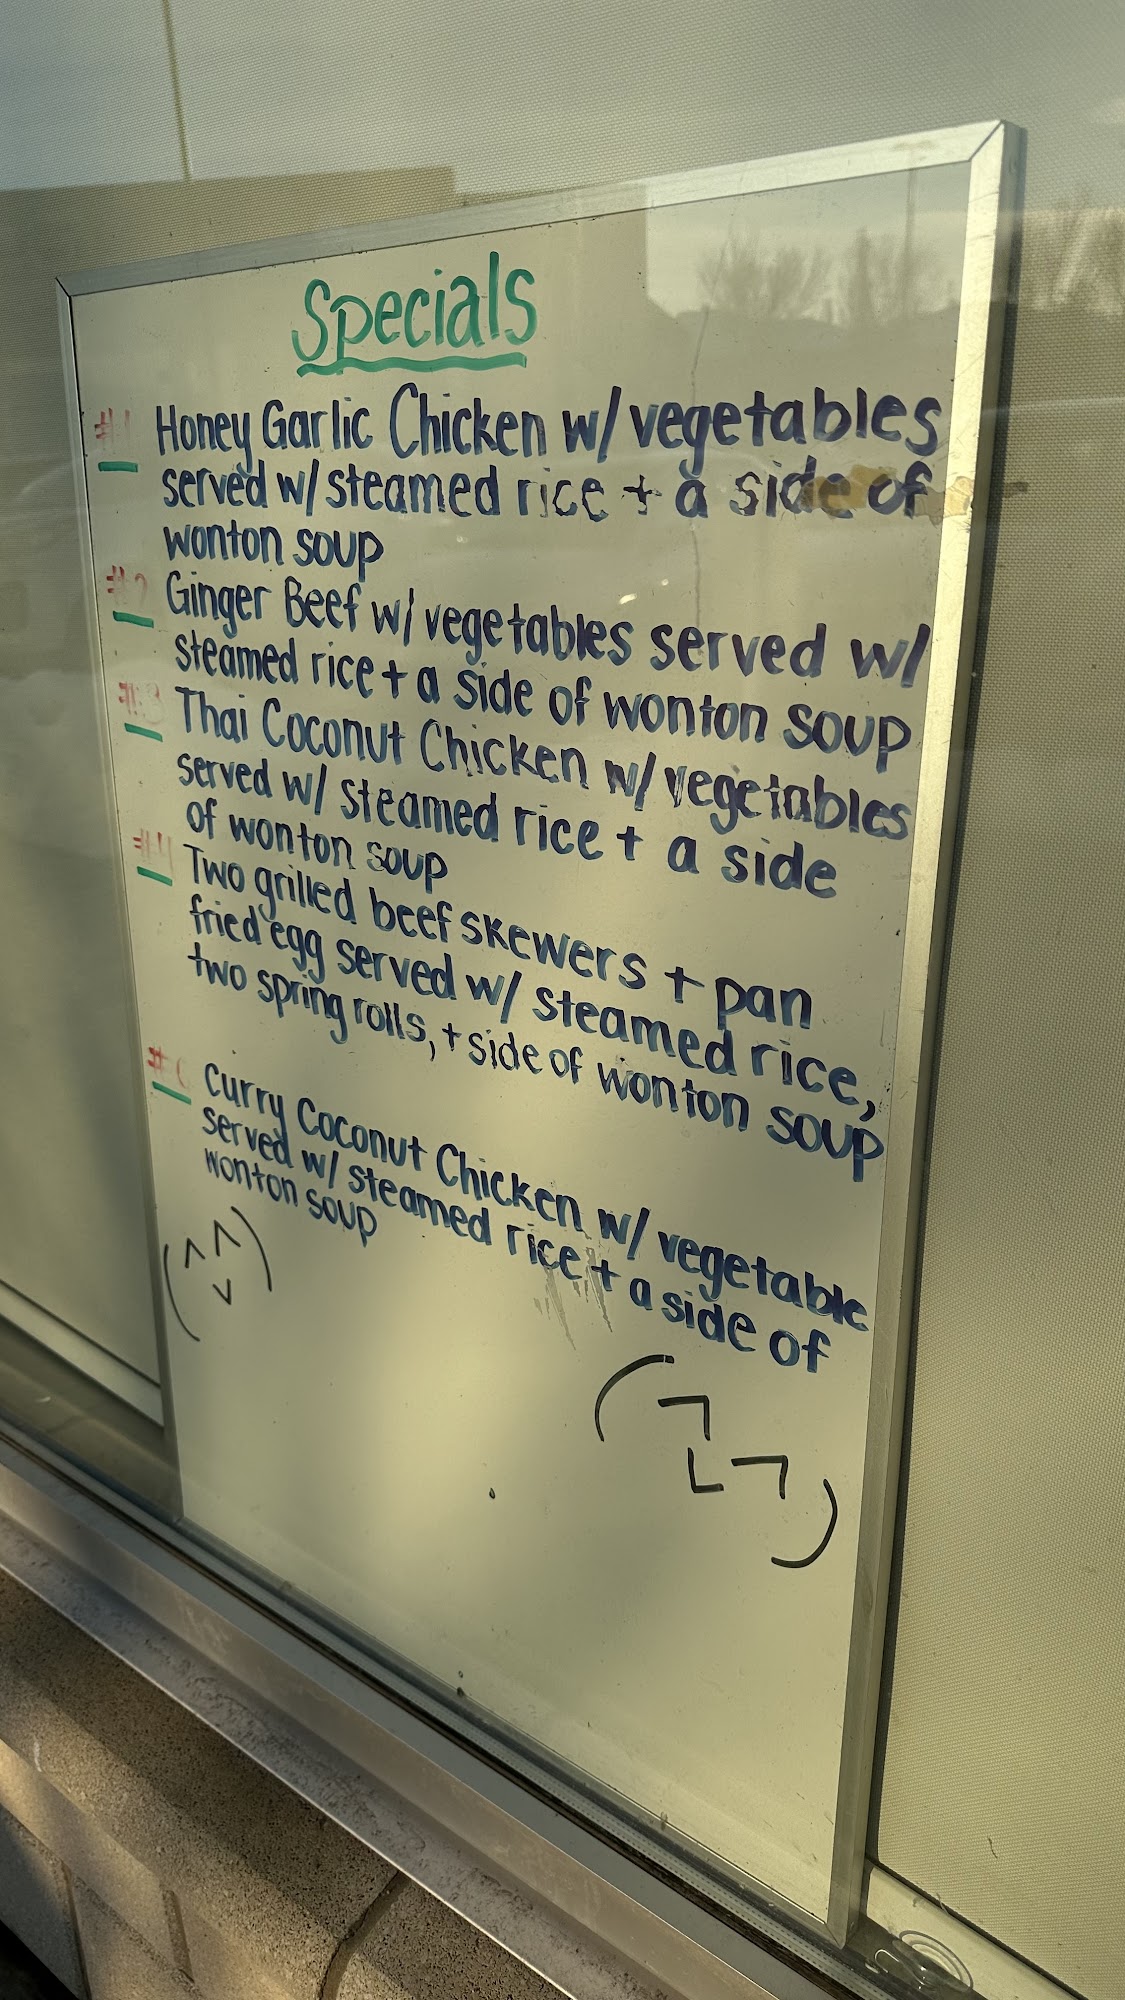 Specials
#1 Honey Garlic Chicken w/ vegetables
served w/ steamed rice + a side of
wonton soup
#2 Ginger Beef w/ vegetables served w/
steamed rice + a side of wonton soup
#3 Thai Coconut Chicken w/ vegetables
served w/ steamed rice + a side
of wonton soup
#4 Two grilled beef skewers + pan
fried egg served w/ steamed rice,
two spring rolls, + side of wonton soup
# Curry Coconut Chicken w/ vegetable
served w/ steamed rice + a side of
wonton soup